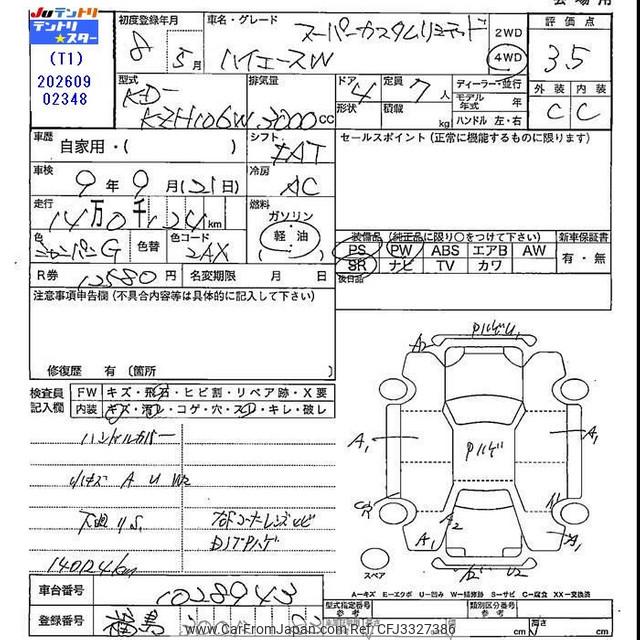 会場用
JUテントリ
テントリ
★スター
(T1)
202609
02348
初度登録年月
8年 5月
車名・グレード
スーパーカスタムリミテッド
ハイエースW
2WD
4WD
評価点
3.5
外装 内装
C C
型式
KD-
KZH106W
排気量
3000cc
ドア 4
形状
定員 7人
積載 kg
ディーラー・並行
モデル年式 年
ハンドル 左・右
車歴
自家用・( )
シフト
IAT
セールスポイント(正常に機能するものに限ります)
車検
9年9月(21日)
冷房
AC
走行
14万0千124km
燃料
ガソリン
軽油
色
シャンパンG
色替
色コード
2AX
装備品 (純正品に限り○をつけて下さい)
新車保証書
PS PW ABS エアB AW
有・無
SR ナビ TV カワ
後日品
R券 12580円
名変期限 月 日
注意事項申告欄(不具合内容等は具体的に記入して下さい)
修復歴 有 (箇所
検査員
記入欄
FW キズ・飛石・ヒビ割・リペア跡・X要
内装 キズ・汚レ・コゲ・穴・スレ・キレ・破レ
ハンドルカバー
小キズ A U W2
下廻りS
140124km
A2
Pハゲ U1
A1
Pハゲ
A1
A2
A1
A1
U2
スペア
A−キズ E−エクボ U−凹み W−補修跡 S−サビ C−腐食 XX−交換済
車台番号
1028943
登録番号
福島
型式指定番号
参考
類別区分番号
参考
長さ cm
幅 cm
高さ cm
www.CarFromJapan.com Ref:CFJ3327386